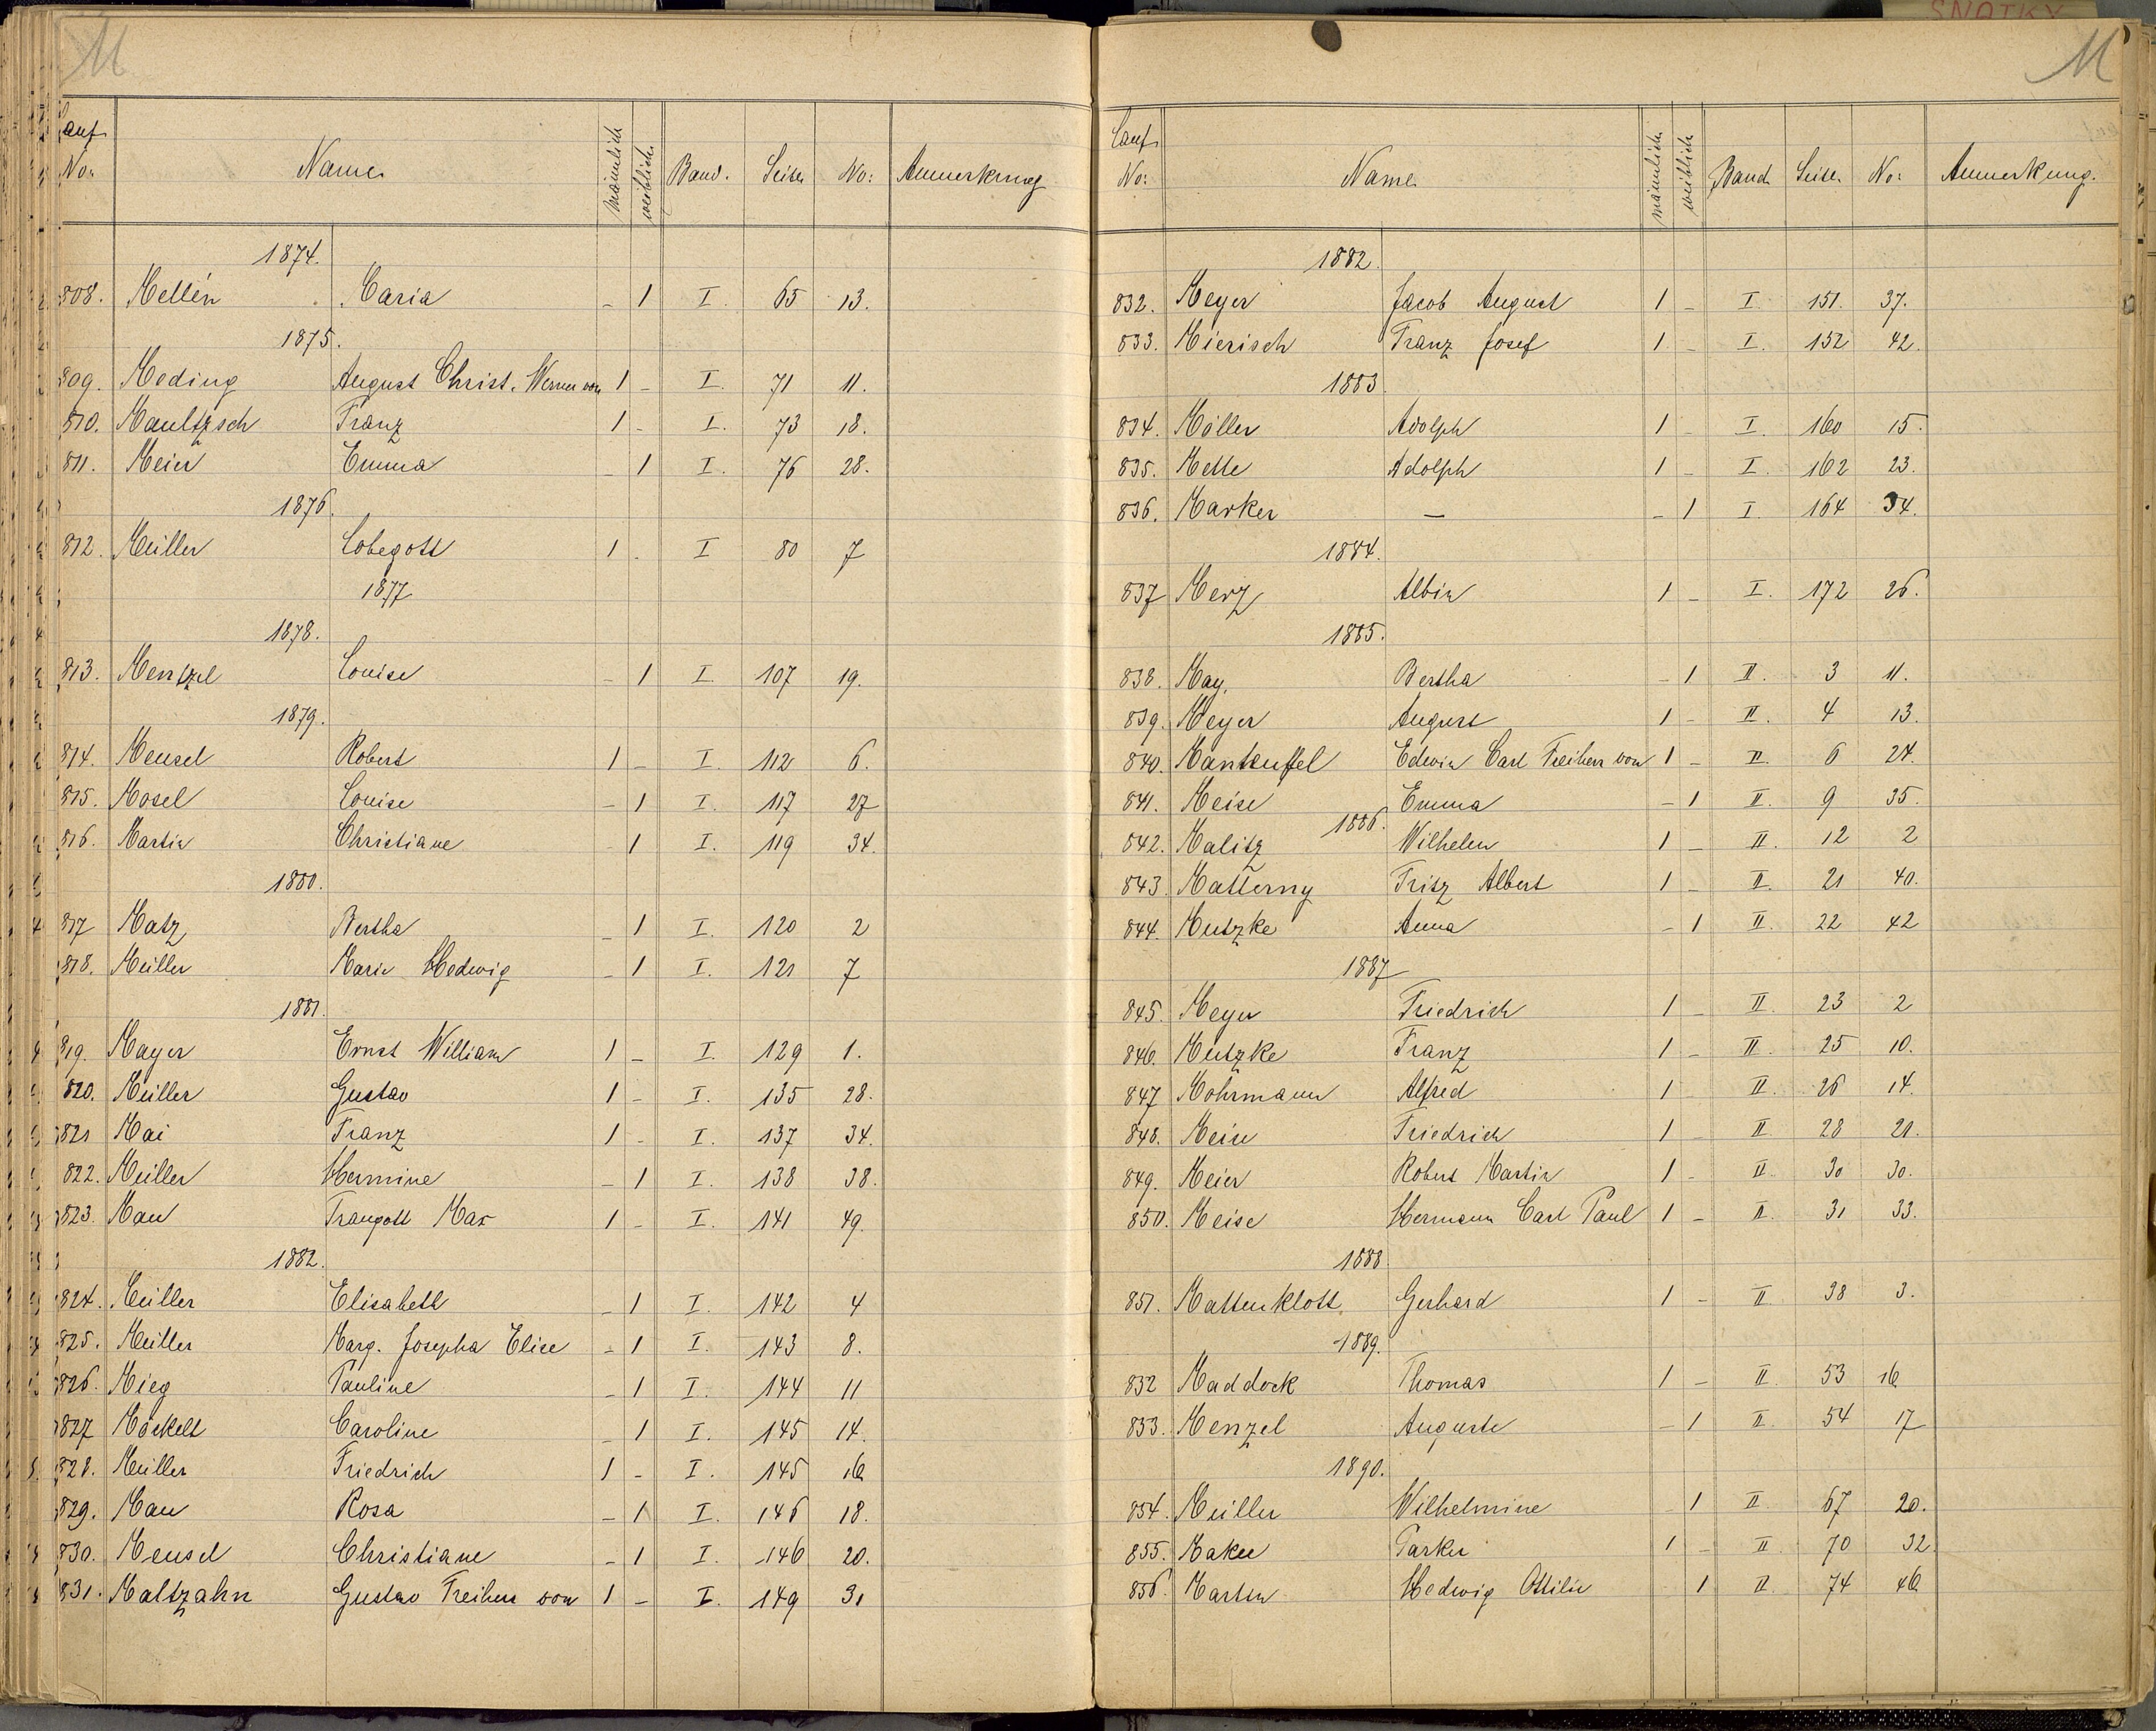 M
Lauf. No: Name männlich weiblich Band. Seite No: Anmerkung
1874.
808. Mellén Maria – 1 I. 65 13.
1875.
809. Meding August Christ. Werner von 1 – I. 71 11.
810. Maultzsch Franz 1 – I. 73 18.
811. Meier Emma – 1 I. 76 28.
1876.
812. Müller Lobegott 1 . I 80 7
1877
1878.
813. Mentzel Louise – 1 I. 107 19.
1879.
814. Mensel Robert 1 – I. 112 6.
815. Mosel Louise – 1 I. 117 27
816. Martin Christiane – 1 I. 119 34.
1880.
817 Matz Bertha – 1 I. 120 2
818. Müller Marie Hedwig – 1 I. 121 7
1881.
819. Mayer Ernst William 1 – I. 129 1.
820. Müller Gustav 1 – I. 135 28.
821 Mai Franz 1 – I. 137 34.
822. Müller Hermine – 1 I. 138 38.
823. Mau Traugott Max 1 – I. 141 49.
1882.
824. Müller Elisabeth – 1 I. 142 4
825. Müller Marg. Josepha Elise – 1 I. 143 8.
826. Mieg Pauline – 1 I. 144 11
827 Möckelt Caroline – 1 I. 145 14.
828. Müller Friedrich 1 – I. 145 16
829. Mau Rosa – 1 I. 146 18.
830. Mensel Christiane – 1 I. 146 20.
831. Maltzahn Gustav Freiherr von 1 – I. 149 31
M
Lauf. No: Name männlich weiblich Band Seite. No: Anmerkung.
1882.
832. Meyer Jacob August 1 – I. 151. 37.
833. Mierisch Franz Josef 1 – I. 152 42.
1883
834. Möller Adolph 1 – I. 160 15.
835. Mette Adolph 1 – I. 162 23.
836. Marker — – 1 I. 164 34.
1884.
837 Merz Albin 1 – I. 172 26.
1885.
838. May, Bertha – 1 II. 3 11.
839. Meyer August 1 – II. 4 13.
840. Manteuffel Edwin Carl Freiherr von 1 – II. 6 24.
841. Meise Emma – 1 II. 9 35.
1886.
842. Malitz Wilhelm 1 – II. 12 2
843. Matterny Fritz Albert 1 – II. 21 40.
844. Mutzke Anna – 1 II. 22 42
1887
845. Meyer Friedrich 1 – II. 23 2
846. Mutzke Franz 1 – II. 25 10.
847 Mohrmann Alfred 1 – II. 26 14.
848. Meise Friedrich 1 – II. 28 21.
849. Meier Robert Martin 1 – II. 30 30.
850. Meise Hermann Carl Paul 1 – II. 31 33.
1888
851. Mattenklott Gerhard 1 – II. 38 3.
1889.
852 Maddock Thomas 1 – II. 53 16
853. Menzel Auguste – 1 II. 54 17
1890.
854. Müller Wilhelmine – 1 II 67 20.
855. Maker Parker 1 – II. 70 32
856. Martin Hedwig Ottilie 1 II. 74 46